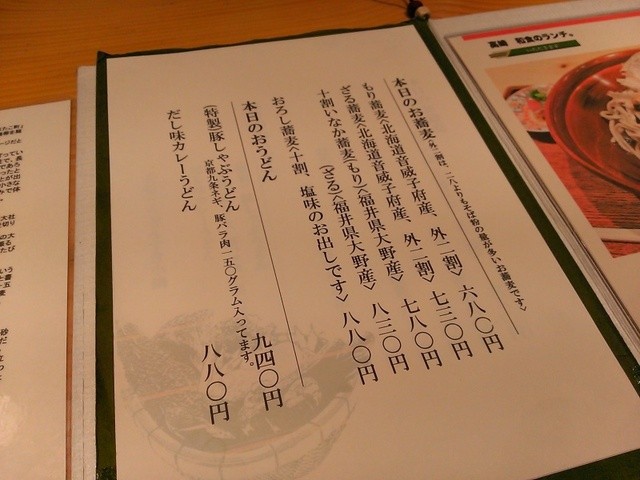 本日のお蕎麦(外二割は、二八よりもそば粉の量が多いお蕎麦です)
もり蕎麦〈北海道音威子府産、外二割〉 六八〇円
ざる蕎麦〈北海道音威子府産、外二割〉 七三〇円
十割いなか蕎麦(もり)〈福井県大野産〉 七八〇円
(ざる)〈福井県大野産〉 八三〇円
おろし蕎麦〈十割、塩味のお出しです〉 八八〇円
本日のおうどん
(特製)豚しゃぶうどん 九四〇円
京都九条ネギ、豚バラ肉一五〇グラム入ってます。
だし味カレーうどん 八八〇円
和食のランチ。